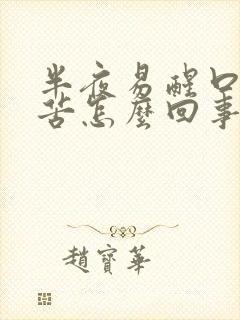 半夜易醒口
苦怎麼回事
趙寶華